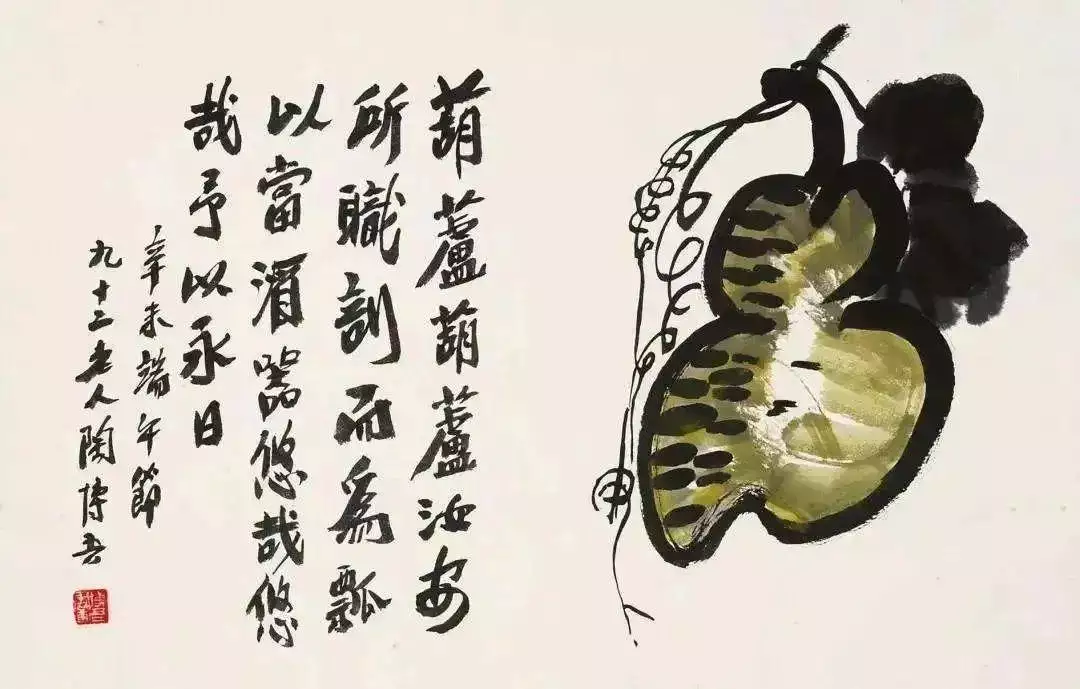 葫蘆葫蘆汝安
所職剖而爲瓢
以當器悠哉悠
哉予以永日
辛未端午節
九十二老人陶博吾